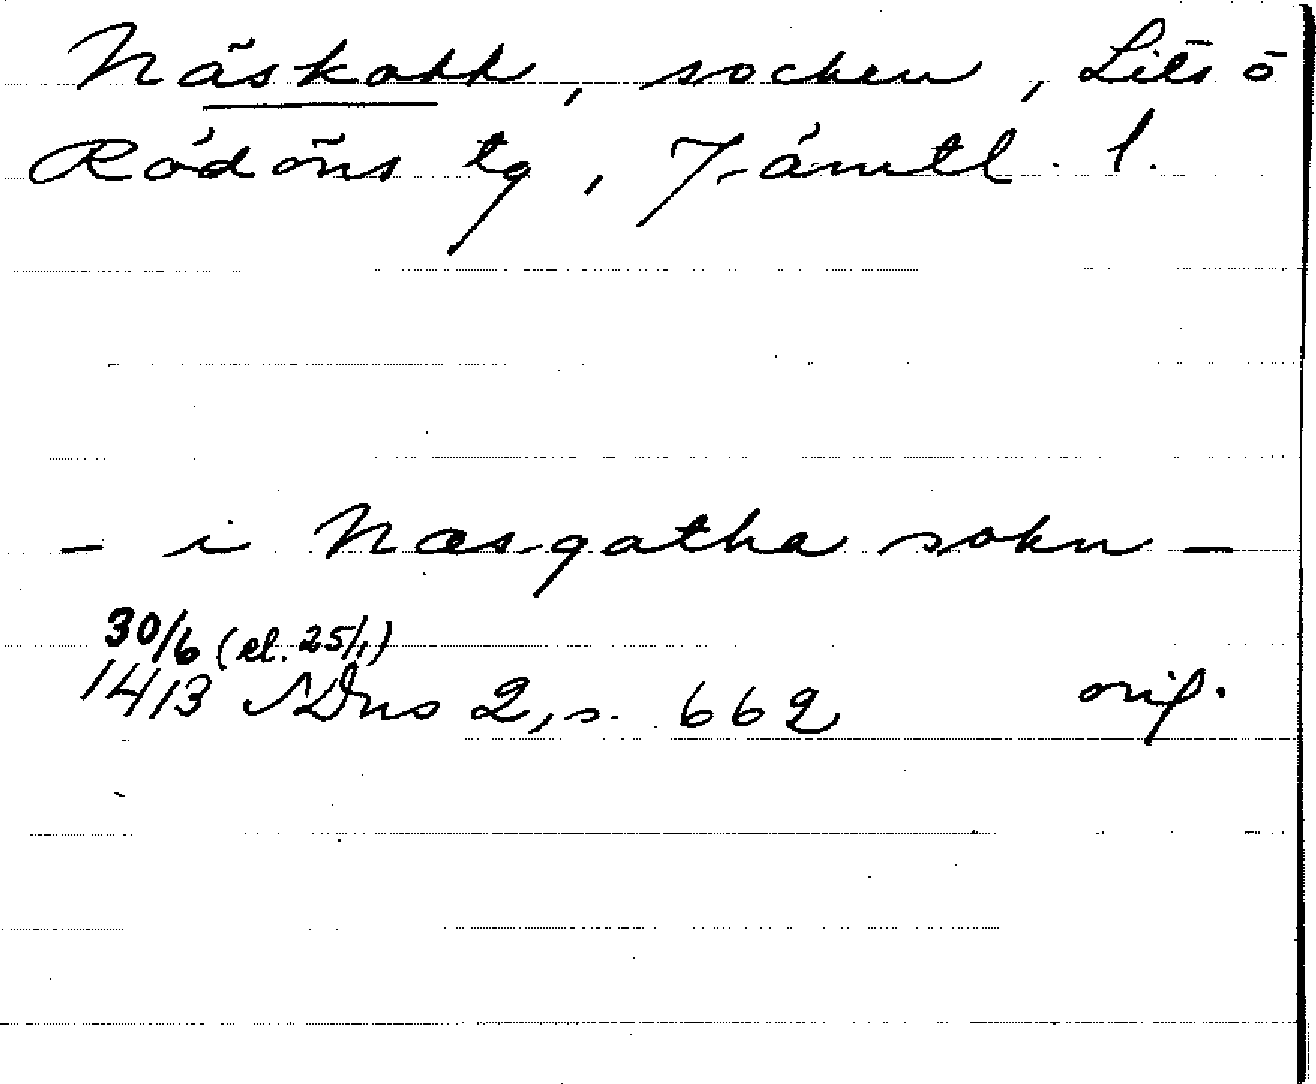 Näskott, socken, Lits o
Rödöns tg, Jämtl. l.
- i Næsgatha sokn -
30/6 (el. 25/1)
1413 SDns 2, s. 662 orig.